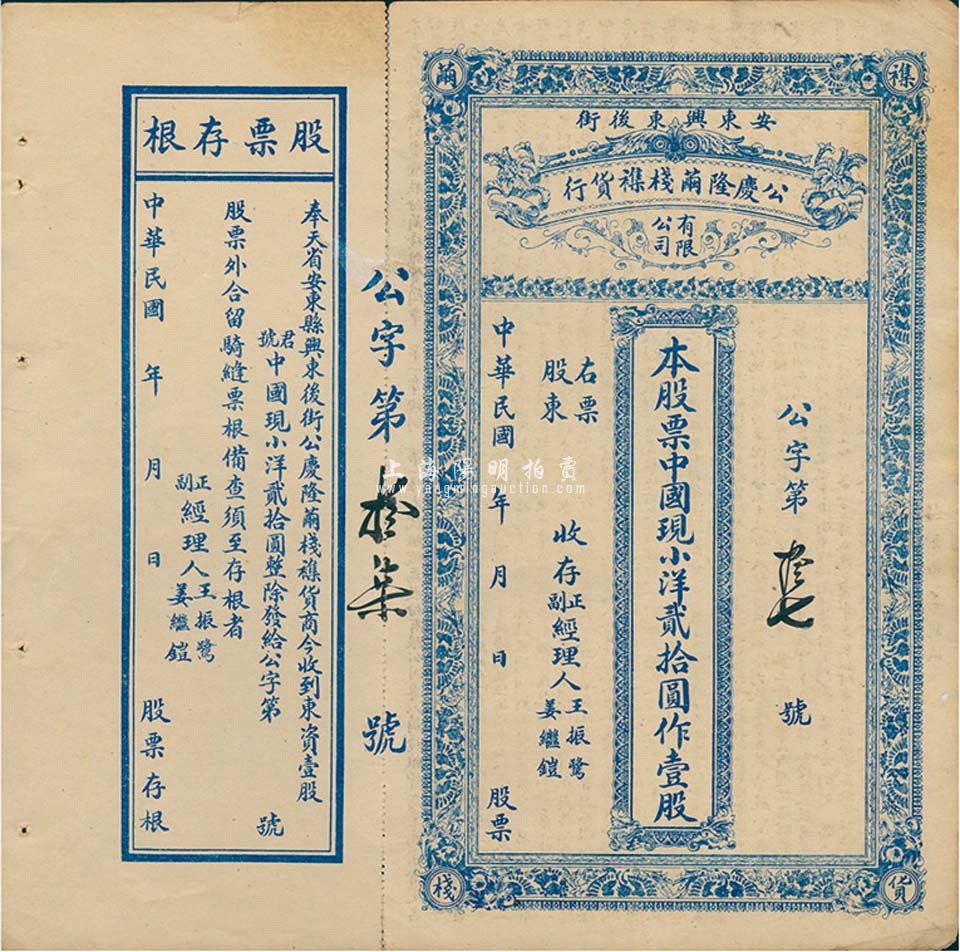 襍
繭
貨
棧
安東興東後街
公慶隆繭棧襍貨行
有限公司
公字第
號
本股票中國現小洋貳拾圓作壹股
右票
股東
收存
正副經理人王振鷺
姜繼鎧
中華民國 年 月 日
股票
公字第拾柒號
股票存根
奉天省安東縣興東後街公慶隆繭棧襍貨商今收到東資壹股
君
號
中國現小洋貳拾圓整除發給公字第 號
股票外合留騎縫票根備查須至存根者
正副經理人王振鷺
姜繼鎧
中華民國 年 月 日
股票存根
上海陽明拍賣
www.yangmingauction.com